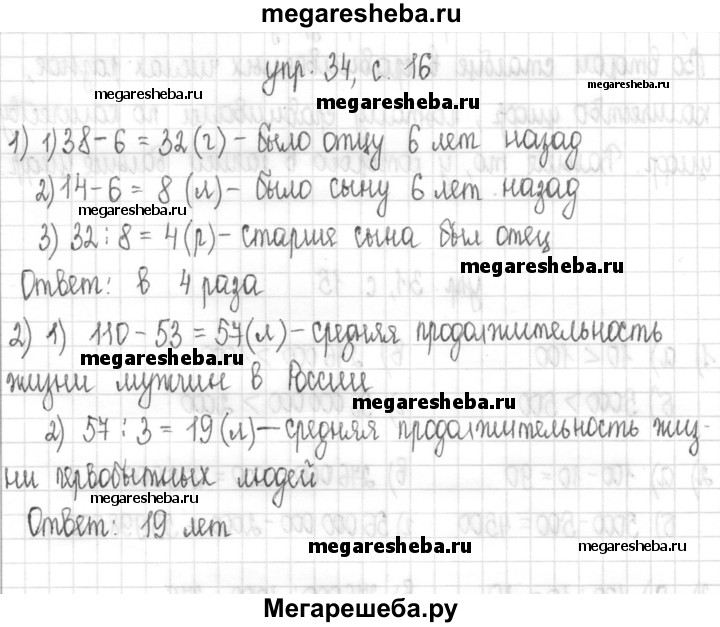 megaresheba.ru
упр. 34, с. 16
megaresheba.ru megaresheba.ru megaresheba.ru
1) 1) 38 - 6 = 32 (г) - было отцу 6 лет назад
2) 14 - 6 = 8 (л) - было сыну 6 лет назад
megaresheba.ru
3) 32 : 8 = 4 (р) - старше сына был отец
megaresheba.ru
Ответ: в 4 раза
2) 1) 110 - 53 = 57 (л) - средняя продолжительность
megaresheba.ru
жизни мужчин в России
megaresheba.ru
2) 57 : 3 = 19 (л) - средняя продолжительность жиз-
ни первобытных людей
megaresheba.ru
Ответ: 19 лет
megaresheba.ru megaresheba.ru
Мегарешеба.ру